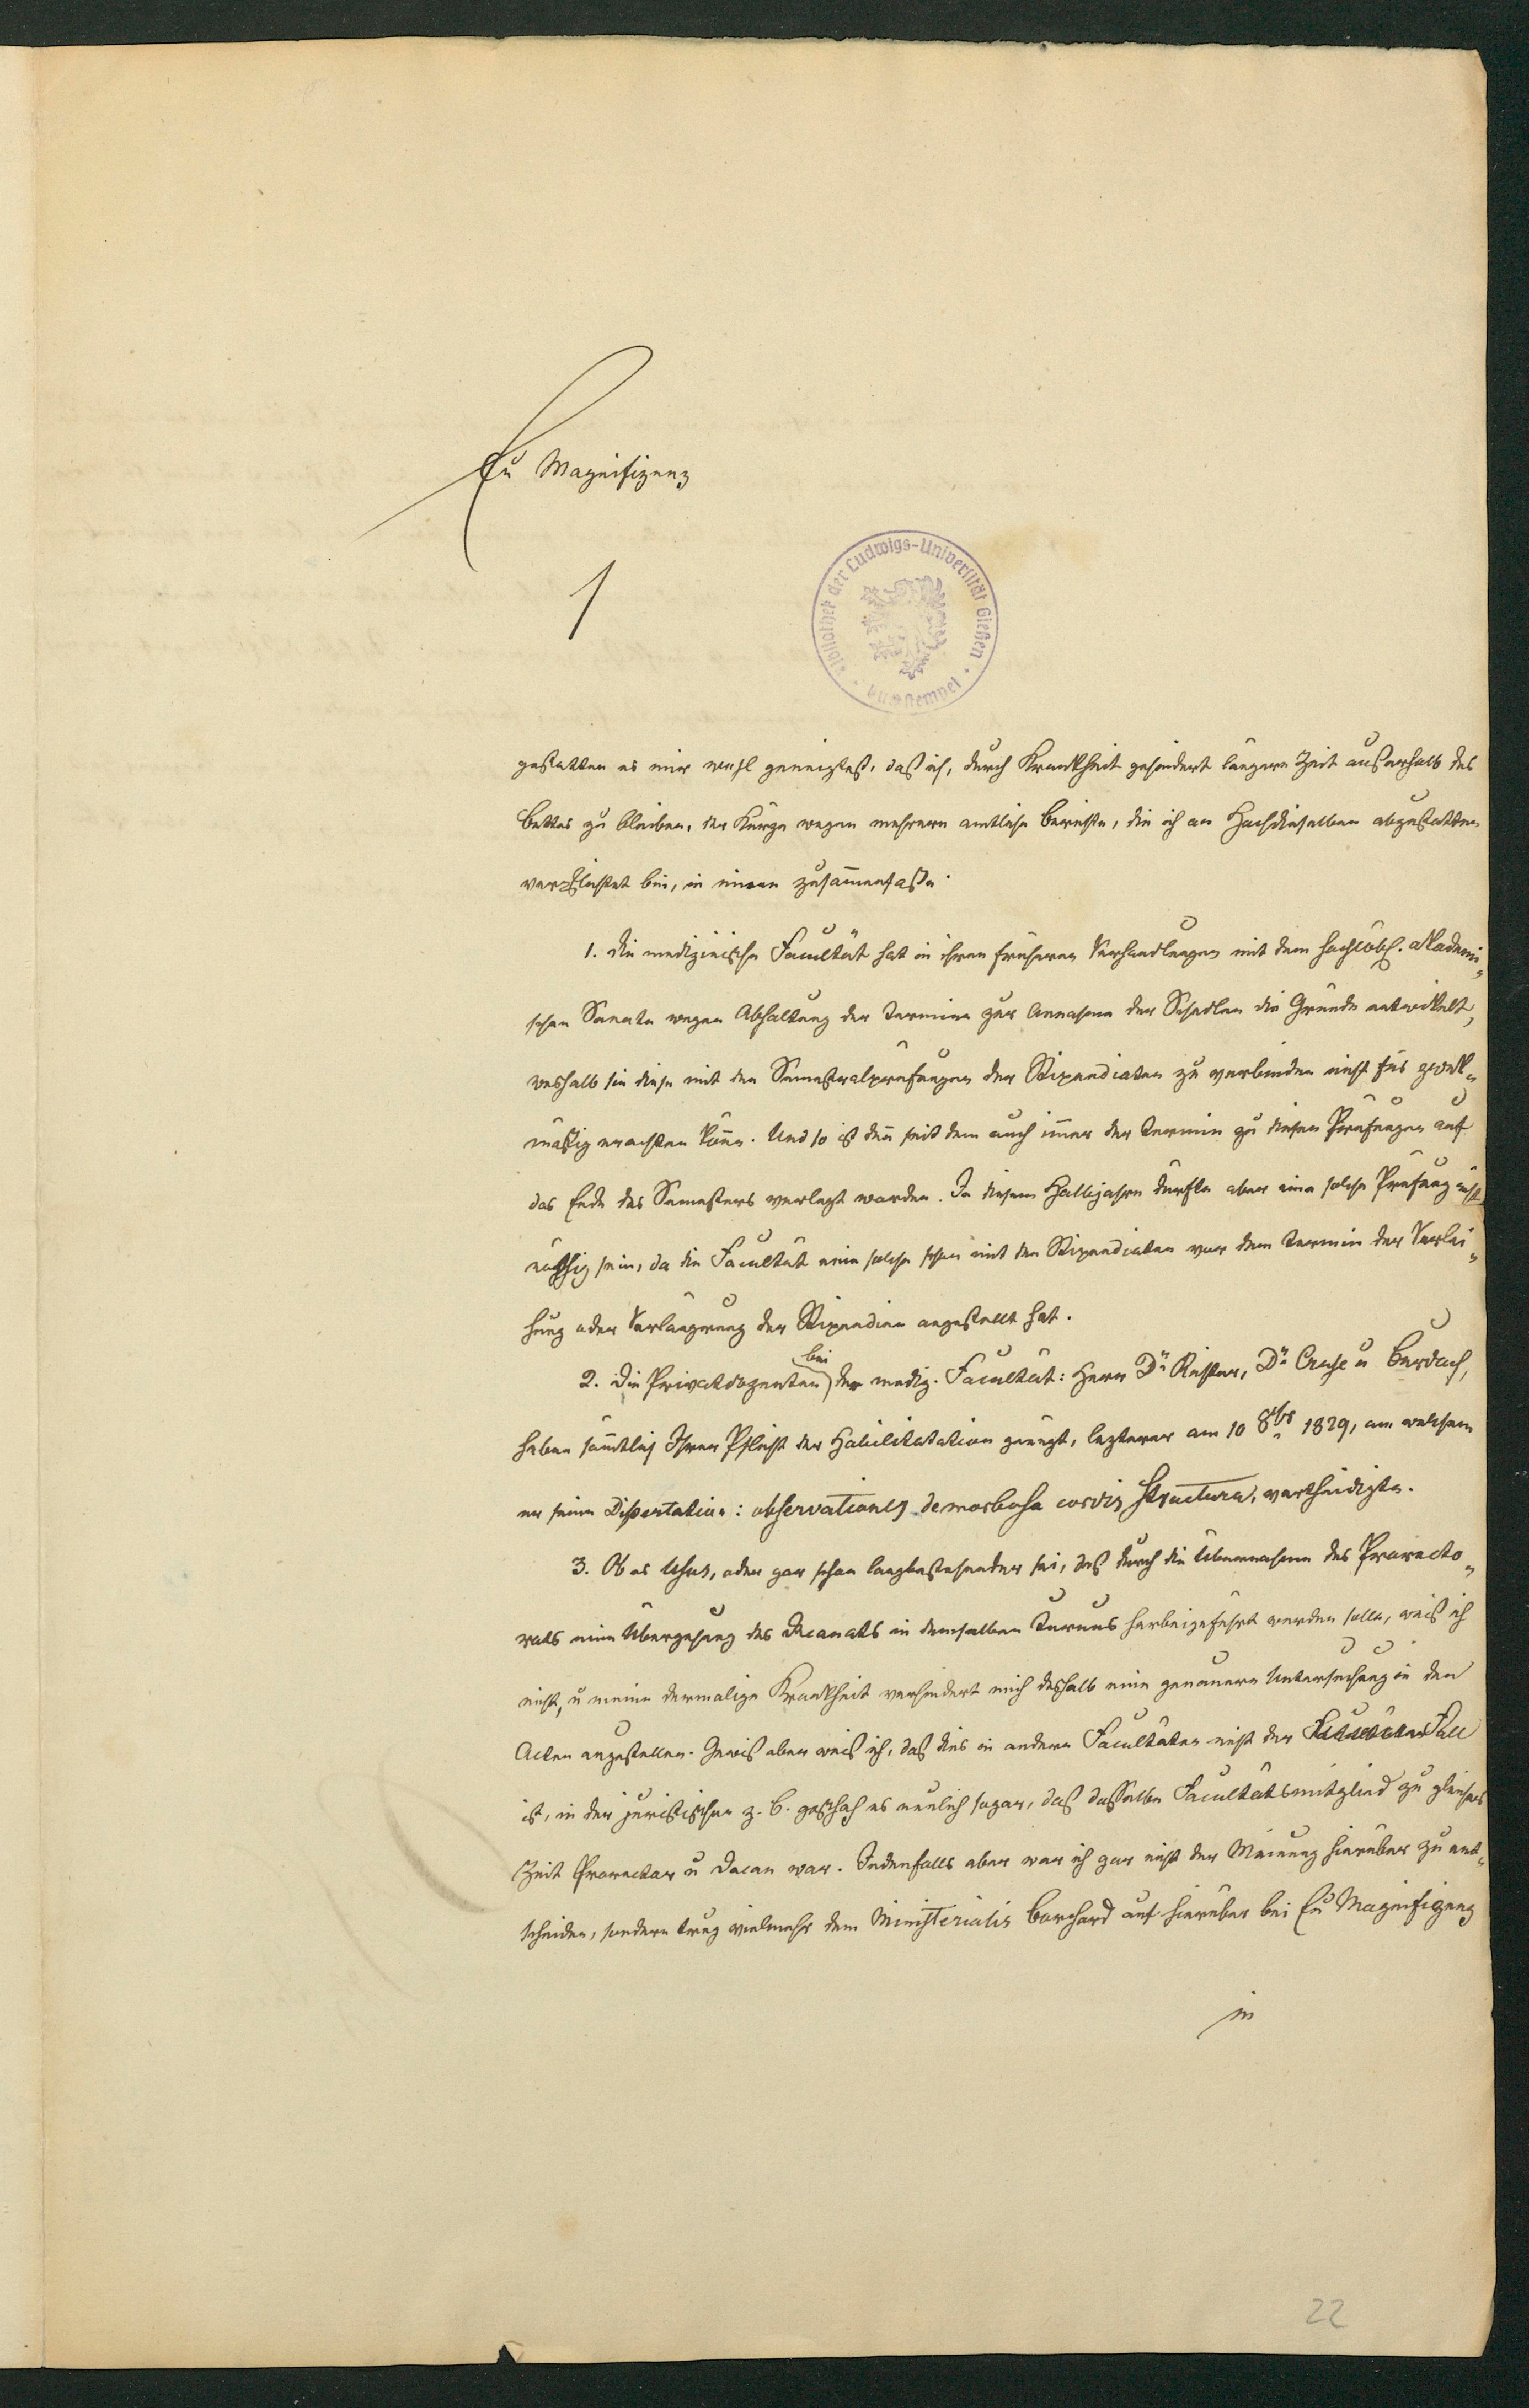 Eu Magnifizenz
Bibliothek der Ludwigs-Universität Gießen
Buchstempel
gestatten es mir wohl geneigtest, daß ich, durch Krankheit gehindert längere Zeit außerhalb des
Bettes zu bleiben, der Kürze wegen mehrere amtliche Berichte, die ich an Hochdieselben abzustatten
verpflichtet bin, in einen zusam̄enfasse.
1. Die medizinische Facultät hat in ihren früheren Verhandlungen mit dem hochlöbl. Akademi„
schen Senate wegen Abhaltung der Termine zur Annahme der Schedlen die Gründe entwickelt,
weshalb sie diese mit den Semestralprüfungen der Stipendiaten zu verbinden nicht für zweck„
mäßig erachten kön̄e. Und so ist den̄ seit dem auch im̄er der Termin zu diesen Prüfungen auf
das Ende des Semesters verlegt worden. In diesem Halbjahre dürfte aber eine solche Prüfung nicht
nöthig sein, da die Facultät eine solche schon mit den Stipendiaten vor dem Termin der Verlei„
hung oder Verlängrung der Stipendien angestellt hat.
2. Die Privatdozenten bei der mediz. Facultät: Herr Dr Richter, Dr Cruse u Burdach,
haben sām̄tlich Ihrer Pflicht der Habilitatation genügt, lezterer am 10 8tbr 1829, an welchem
er seine Dissertation: observationes de morbosa cordis structura, vertheidigte.
3. Ob es Usus, oder gar schon langbestehender sei, daß durch die Übernahme des Prorecto„
rats eine Übergehung des Decanats in demselben Turnus herbeigeführt werden solle, weiß ich
nicht, u meine dermalige Krankheit verhindert mich deshalb eine genauere Untersuchung in den
Acten anzustellen. Gewiß aber weiß ich, daß dies in andern Facultäten nicht der Fall
ist, in der juristischen z. B. geschah es neulich sogar, daß dasselbe Facultätsmitglied zu gleicher
Zeit Prorector u Decan war. Jedenfalls aber war ich gar nicht der Meinung hierüber zu ent„
scheiden, sondern trug vielmehr dem Ministerialis Borchard auf hierüber bei Eu Magnifizenz
in
22